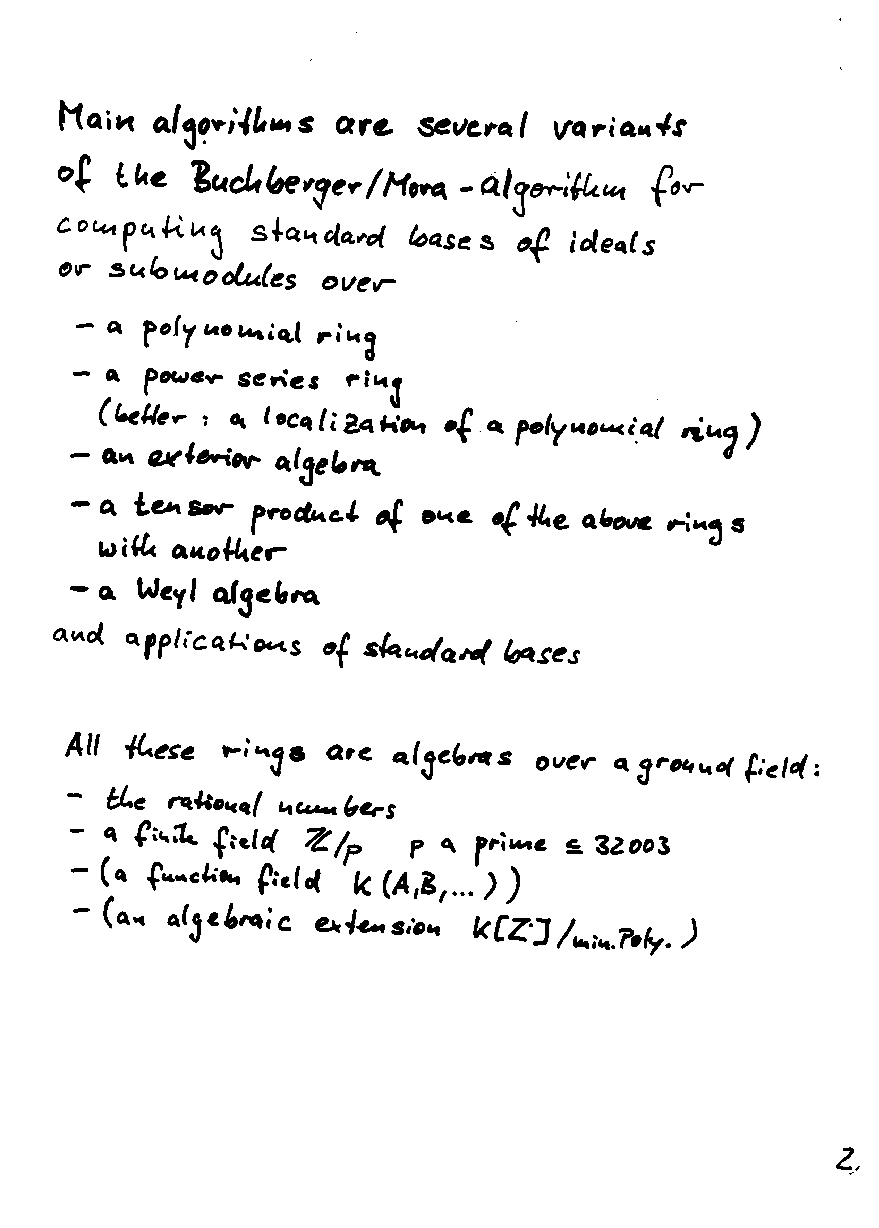 Main algorithms are several variants
of the Buchberger/Mora-algorithm for
computing standard bases of ideals
or submodules over
- a polynomial ring
- a power series ring
(better: a localization of a polynomial ring)
- an exterior algebra
- a tensor product of one of the above rings
with another
- a Weyl algebra
and applications of standard bases
All these rings are algebras over a ground field:
- the rational numbers
- a finite field ℤ/p p a prime ≤ 32003
- (a function field K(A,B,...))
- (an algebraic extension K[Z]/min.Poly.)
2.